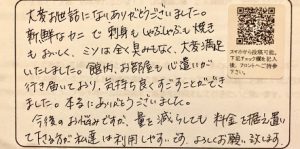 大変お世話になりありがとうございました。
新鮮なカニで刺身もしゃぶしゃぶも焼き
もおいしく、ミソは全く臭みもなく、大変満足
いたしました。館内、お部屋も心遣いが
行き届いており、気持ち良くすごすことができ
ました。本当にありがとうございました。
今後のお悩みですが、量を減らしても料金を据え置い
て下さる方が私達は利用しやすいです。よろしくお願い致します。
スマホから投稿可能。
下記チェック欄を記入
後、フロントへご持参
下さい。